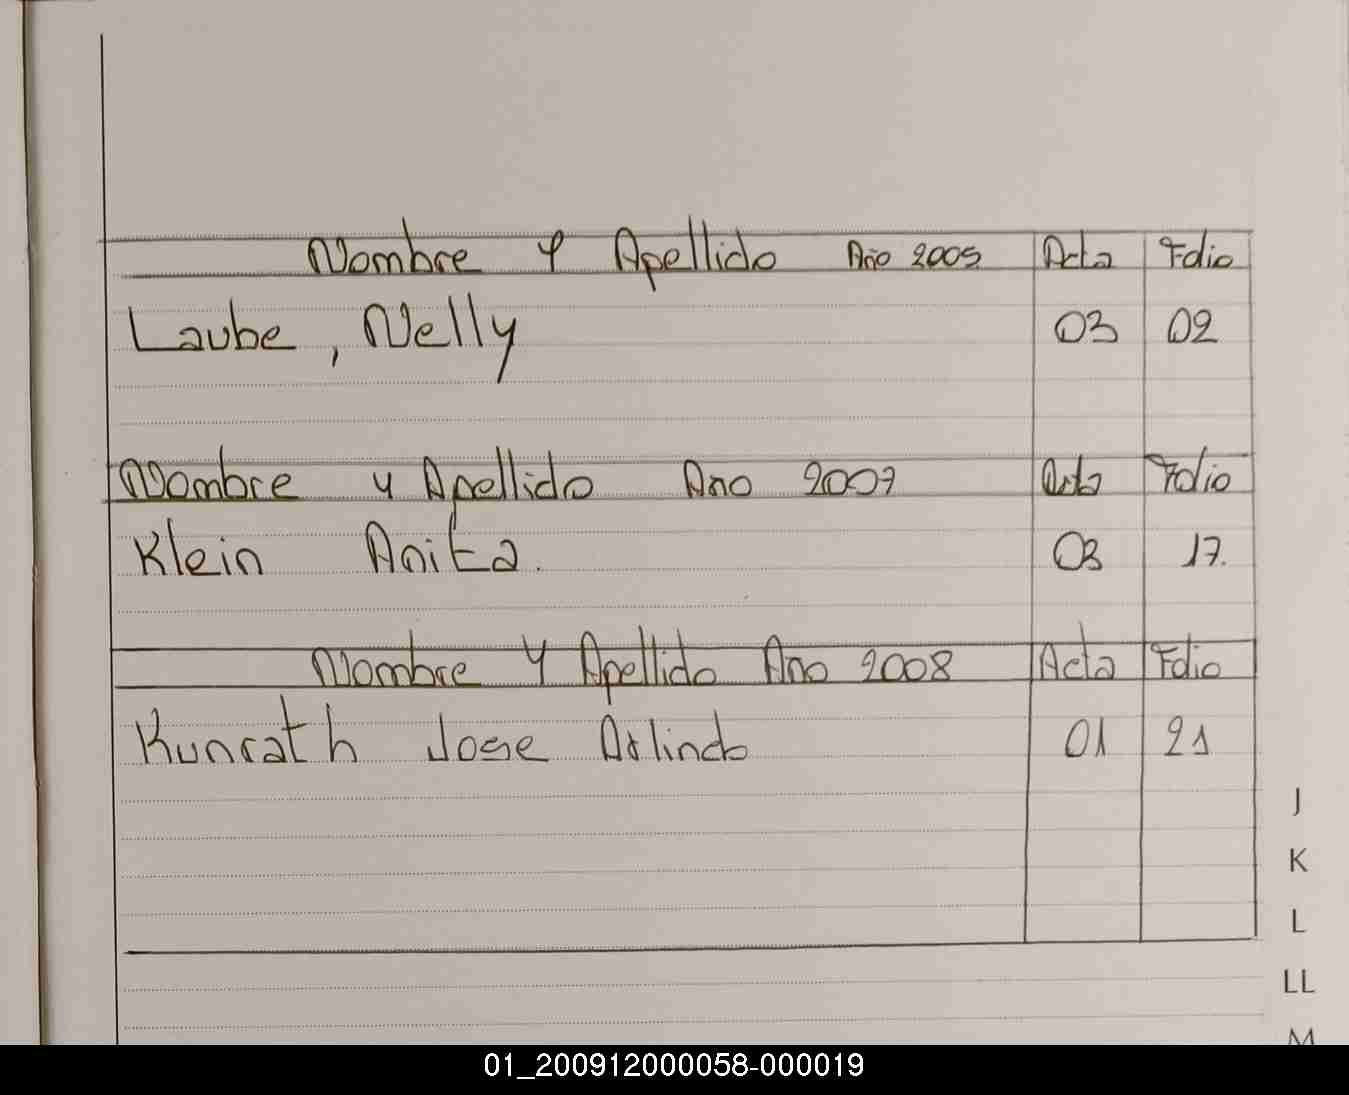 Nombre y Apellido Año 2005 Acta Folio
Laube, Nelly 03 02
Nombre y Apellido Ano 2007 Acta Folio
Klein Anita. 03 17.
Nombre Y Apellido Ano 2008 Acta Folio
Kunrath Jose Arlindo 01 21
J
K
L
LL
M
01_200912000058-000019